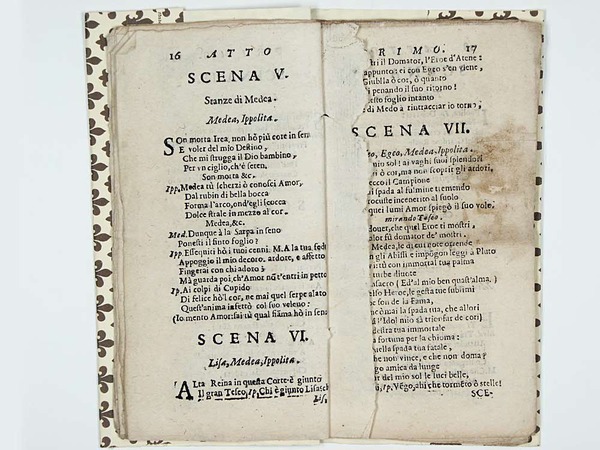 16 ATTO
SCENA V.
Stanze di Medea.
Medea, Ippolita.
SOn morta Irea, non hò più core in sen
E voler del mio Destino,
Che mi strugga il Dio bambino,
Per vn ciglio, ch'è seren.
Son morta &c.
Ipp. Medea tù scherzi ò conosci Amor,
Dal rubin di bella bocca
Forma l'arco, ond'egli scocca
Dolce strale in mezzo al cor.
Medea, &c.
Med. Dunque à la Sarpa in seno
Ponesti il finto foglio?
Ipp. Essequiti hò i tuoi cenni: M. A la tua fede
Appoggio il mio decoro: ardore, e affetto
Fingerai con chi adoro;
Mà guarda poi, ch'Amor nõ t'entri in petto
Ip. Ai colpi di Cupido
Di selice hò'l cor, ne mai quel serpe alato
Quest'anima infettò col suo veleno:
(Io mento Amor: sai tù qual fiãma hò in seno
SCENA VI.
Lisa, Medea, Ippolita.
ALta Reina in questa Corte è giunto
Il gran Teseo, Ip. Chi è giunto Lisa
Lis.
RIMO. 17
il Domator, l'Eroe d'Atene:
appunto: ei con Egeo s'en viene,
Giubila ò cor, ò quanto
penando il suo ritorno!
foglio intanto
di Medo à rintracciar io torno;
SCENA VII.
Egeo, Medea, Ippolita.
mio sol! ai vaghi suoi splendori
ò cor, ma non scoprir gli ardori,
ecco il Campione
spada al fulmine tremendo
incenerito al suolo
quei lumi Amor spiegò il suo volo.
mirando Teseo.
che quel Eroe ti mostri,
sù domator de' mostri.
Medea, le di cui note orrende
gli Abissi e impõgon leggi à Pluto
con immortal tua palma
turbe diuote
(Ed'al mio ben quast'alma.)
Heroe, le gesta tue sublimi
son de la Fama,
mai la spada tua, che allori
l'Idol mio sà trionfar de cori)
destra tua immortale
fortuna per la chioma:
nella spada tua fatale,
che non vince, e che non doma?
amica da lunge
del mio sol le luci belle,
Ip. Vẽgo, ahi che tormẽto ò stelle!
SCE-